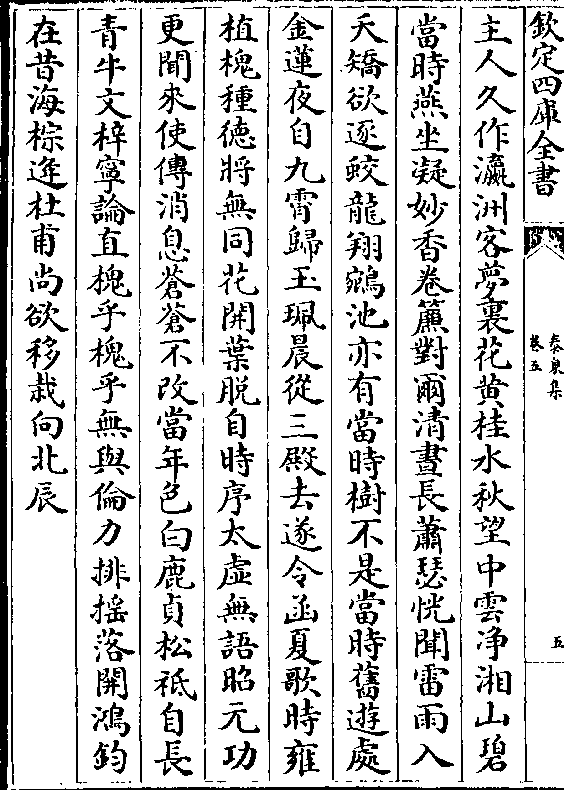 欽定四庫全書
泰泉集
卷五
五
主人久作瀛洲客夢裏花黄桂水秋望中雲净湘山碧
當時燕坐凝妙香卷簾對爾清晝長蕭瑟恍聞雷雨入
夭矯欲逐蛟龍翔鵷池亦有當時樹不是當時舊遊處
金蓮夜自九霄歸玉珮晨從三殿去遂令函夏歌時雍
植槐種德將無同花開葉脱自時序太虚無語昭元功
更聞來使傳消息蒼蒼不改當年色白鹿貞松祇自長
青牛文梓寧論直槐乎槐乎無與倫力排揺落開鴻鈞
在昔海棕逢杜甫尚欲移栽向北辰